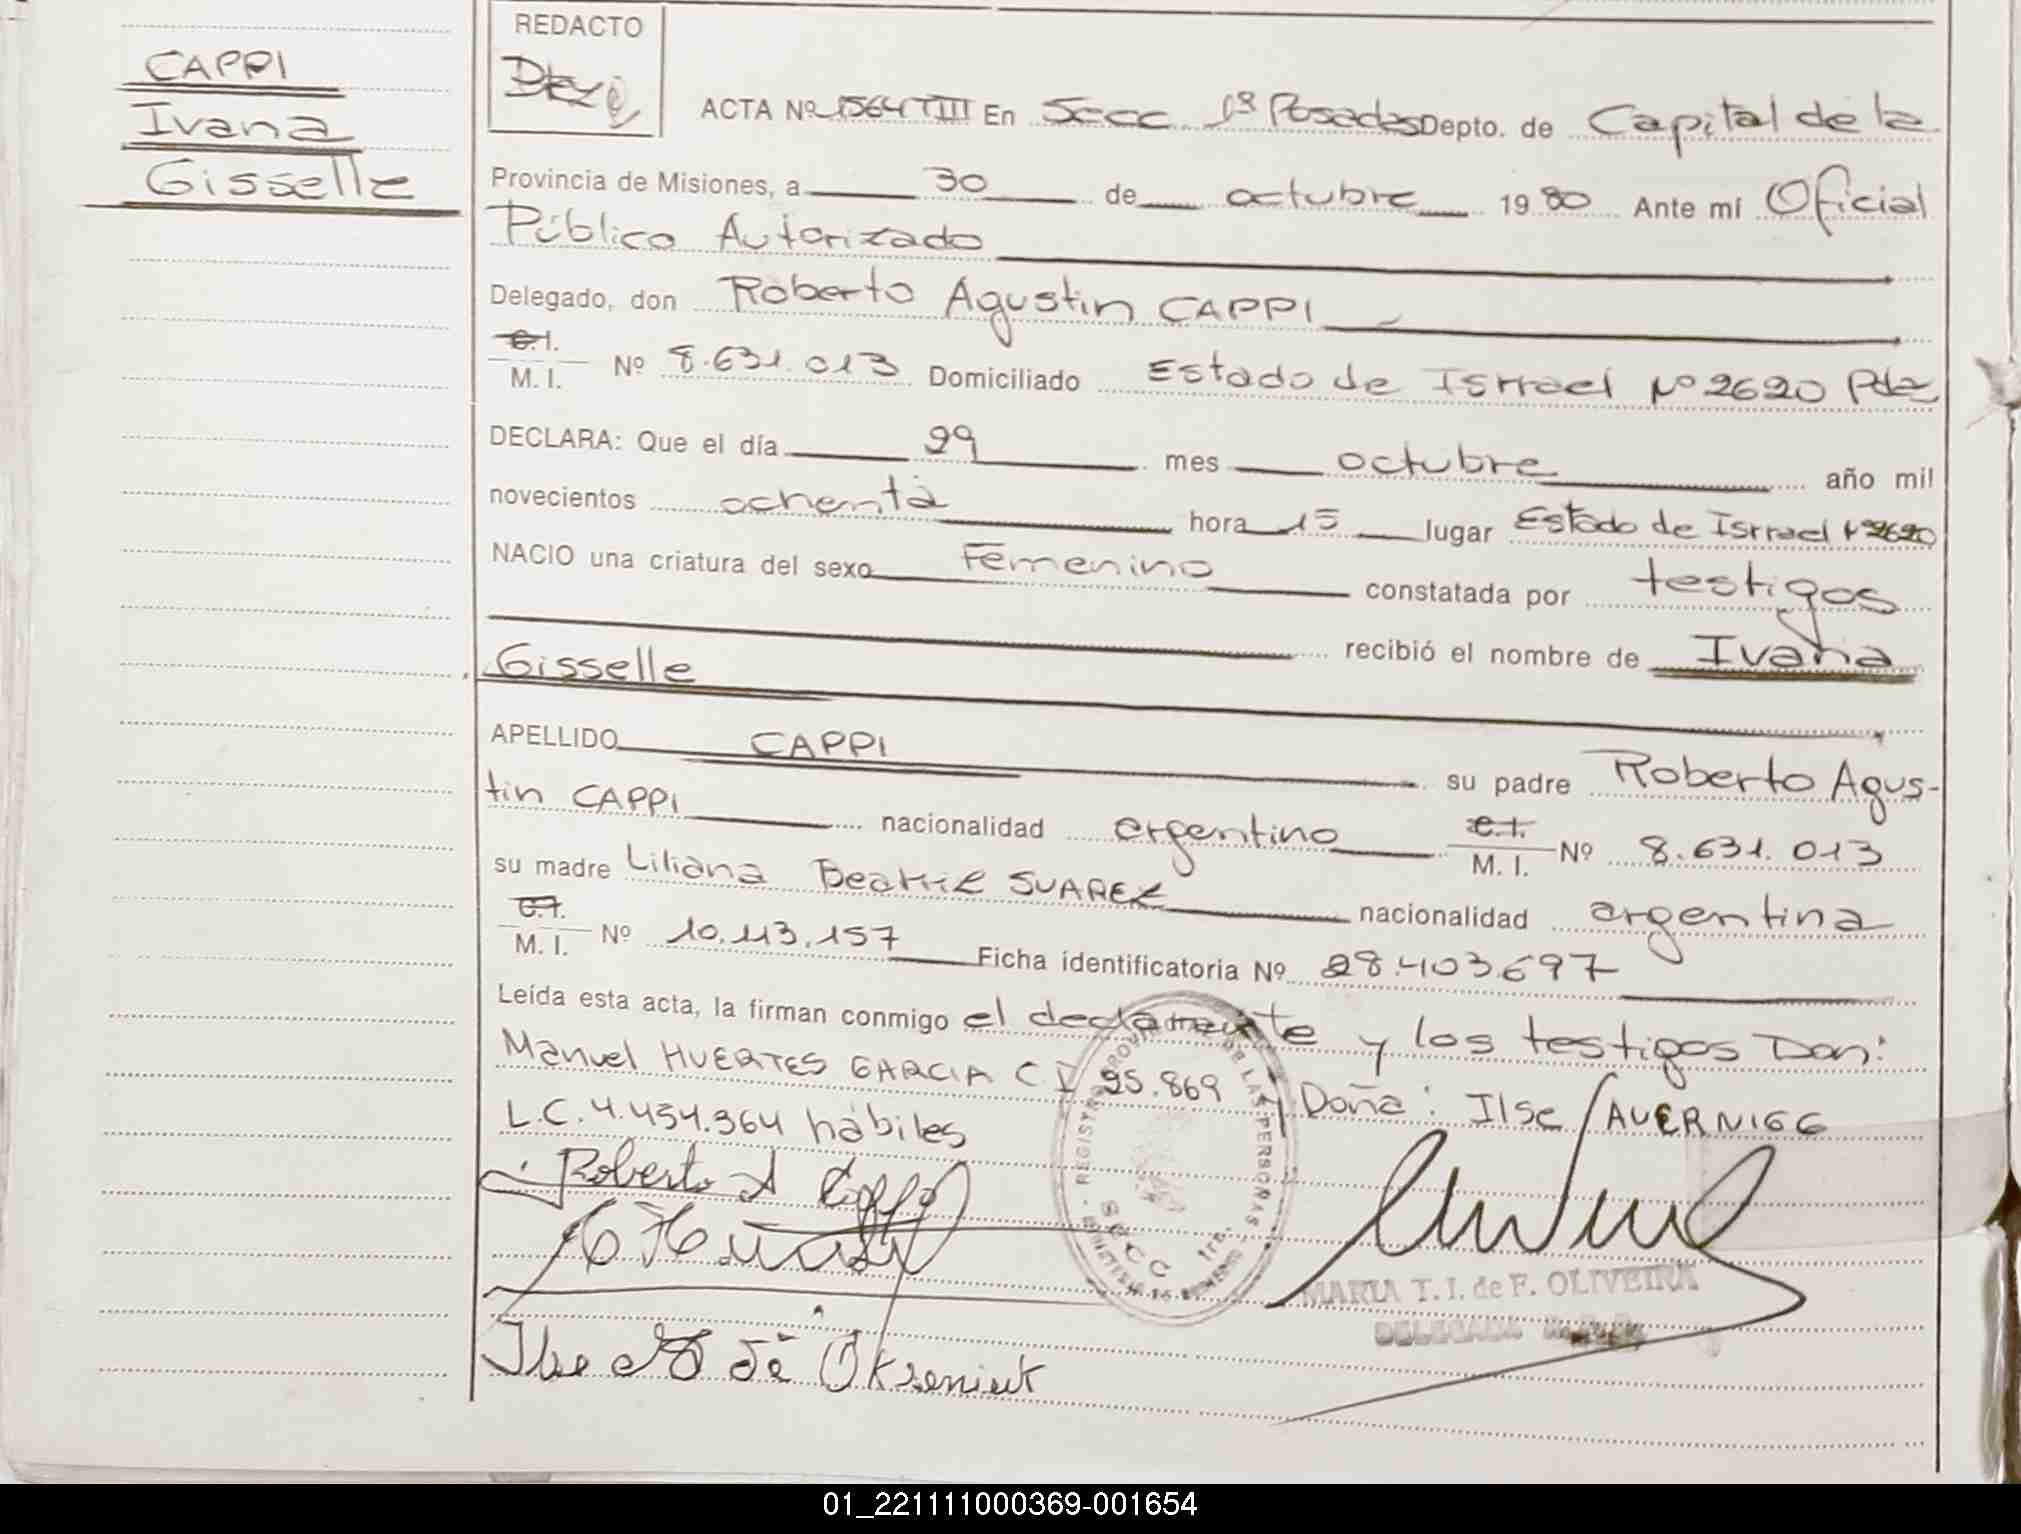 CAPPI
Ivana
Gisselle
REDACTO
ACTA Nº 1564 TIII En Secc 1ª Posadas Depto. de Capital de la
Provincia de Misiones, a 30 de octubre 1980 Ante mí Oficial
Público Autorizado
Delegado, don Roberto Agustin CAPPI
C.I.
M. I. Nº 8.631.013 Domiciliado Estado de Isrrael Nº 2620 Pdas
DECLARA: Que el día 29 mes octubre año mil
novecientos ochenta hora 15 lugar Estado de Isrrael Nº 2620
NACIO una criatura del sexo Femenino constatada por testigos
recibió el nombre de Ivana
Gisselle
APELLIDO CAPPI su padre Roberto Agus-
tin CAPPI nacionalidad argentino C.I. M. I. Nº 8.631.013
su madre Liliana Beatriz SUAREZ nacionalidad argentina
C.I.
M. I. Nº 10.113.157 Ficha identificatoria Nº 28.403.697
Leída esta acta, la firman conmigo el declarante y los testigos Don:
Manuel HUERTES GARCIA C.I 25.869 y Doña: Ilse AUERNIGG
L.C. 4.454.364 hábiles
Roberto A Cappi
REGISTRO PROVINCIAL DE LAS PERSONAS
MINISTERIO DE GOBIERNO
SECC 1ra.
MARIA T. I. de F. OLIVEIRA
DELEGADA
Ilse de Okseniuk
01_221111000369-001654